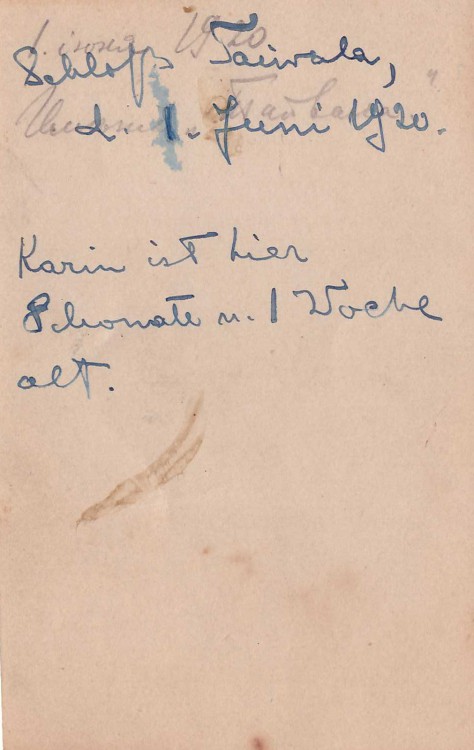 1. июня 1920
Schloß Taiwala,
d. 1. Juni 1920.
Karin ist hier
8 Monate u. 1 Woche
alt.